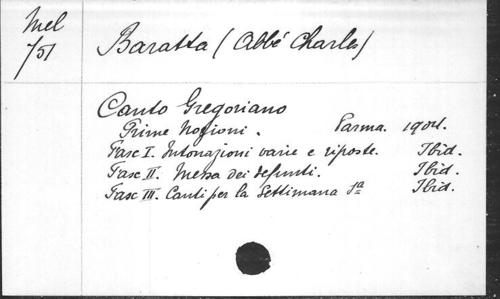 Mel
751
Baratta (Abbé Charles)
Canto Gregoriano
Prime Nozioni. Parma. 1904.
Fasc I. Intonazioni varie e riposte. Ibid.
Fasc II. Messa dei defunti. Ibid.
Fasc III. Canti per la Settimana Sa Ibid.